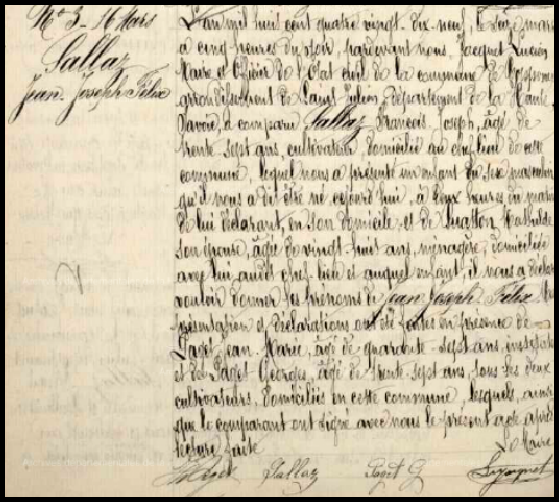 N° 3 - 16 Mars
Sallaz
Jean Joseph Félix
L'an mil huit cent quatre vingt-dix-neuf, le seize mars
à cinq heures du soir, pardevant nous, Jacquet Lucien
Maire et Officier de l'Etat civil de la commune de
arrondissement de Saint Julien, département de la Haute
Savoie, a comparu Sallaz François Joseph, âgé de
trente sept ans, cultivateur, domicilié au chef lieu de cette
commune, lequel nous a présenté un enfant du sexe masculin
qu'il nous a dit être né cejourd'hui, à deux heures du matin
de lui déclarant, en son domicile, et de Mathilde
son épouse, âgée de vingt-huit ans, ménagère, domiciliée
avec lui audit chef-lieu et auquel enfant, il nous a déclaré
vouloir donner les prénoms de Jean Joseph Félix. Les
présentation et déclarations ont été faites en présence de
Paget Jean-Marie, âgé de quarante-sept ans,
et de Paget Georges, âgé de trente-sept ans, tous les deux
cultivateurs, domiciliés en cette commune, lesquels, ainsi
que le comparant ont signé avec nous le présent acte après
lecture faite
Le Maire
Paget Sallaz Paget G Jacquet